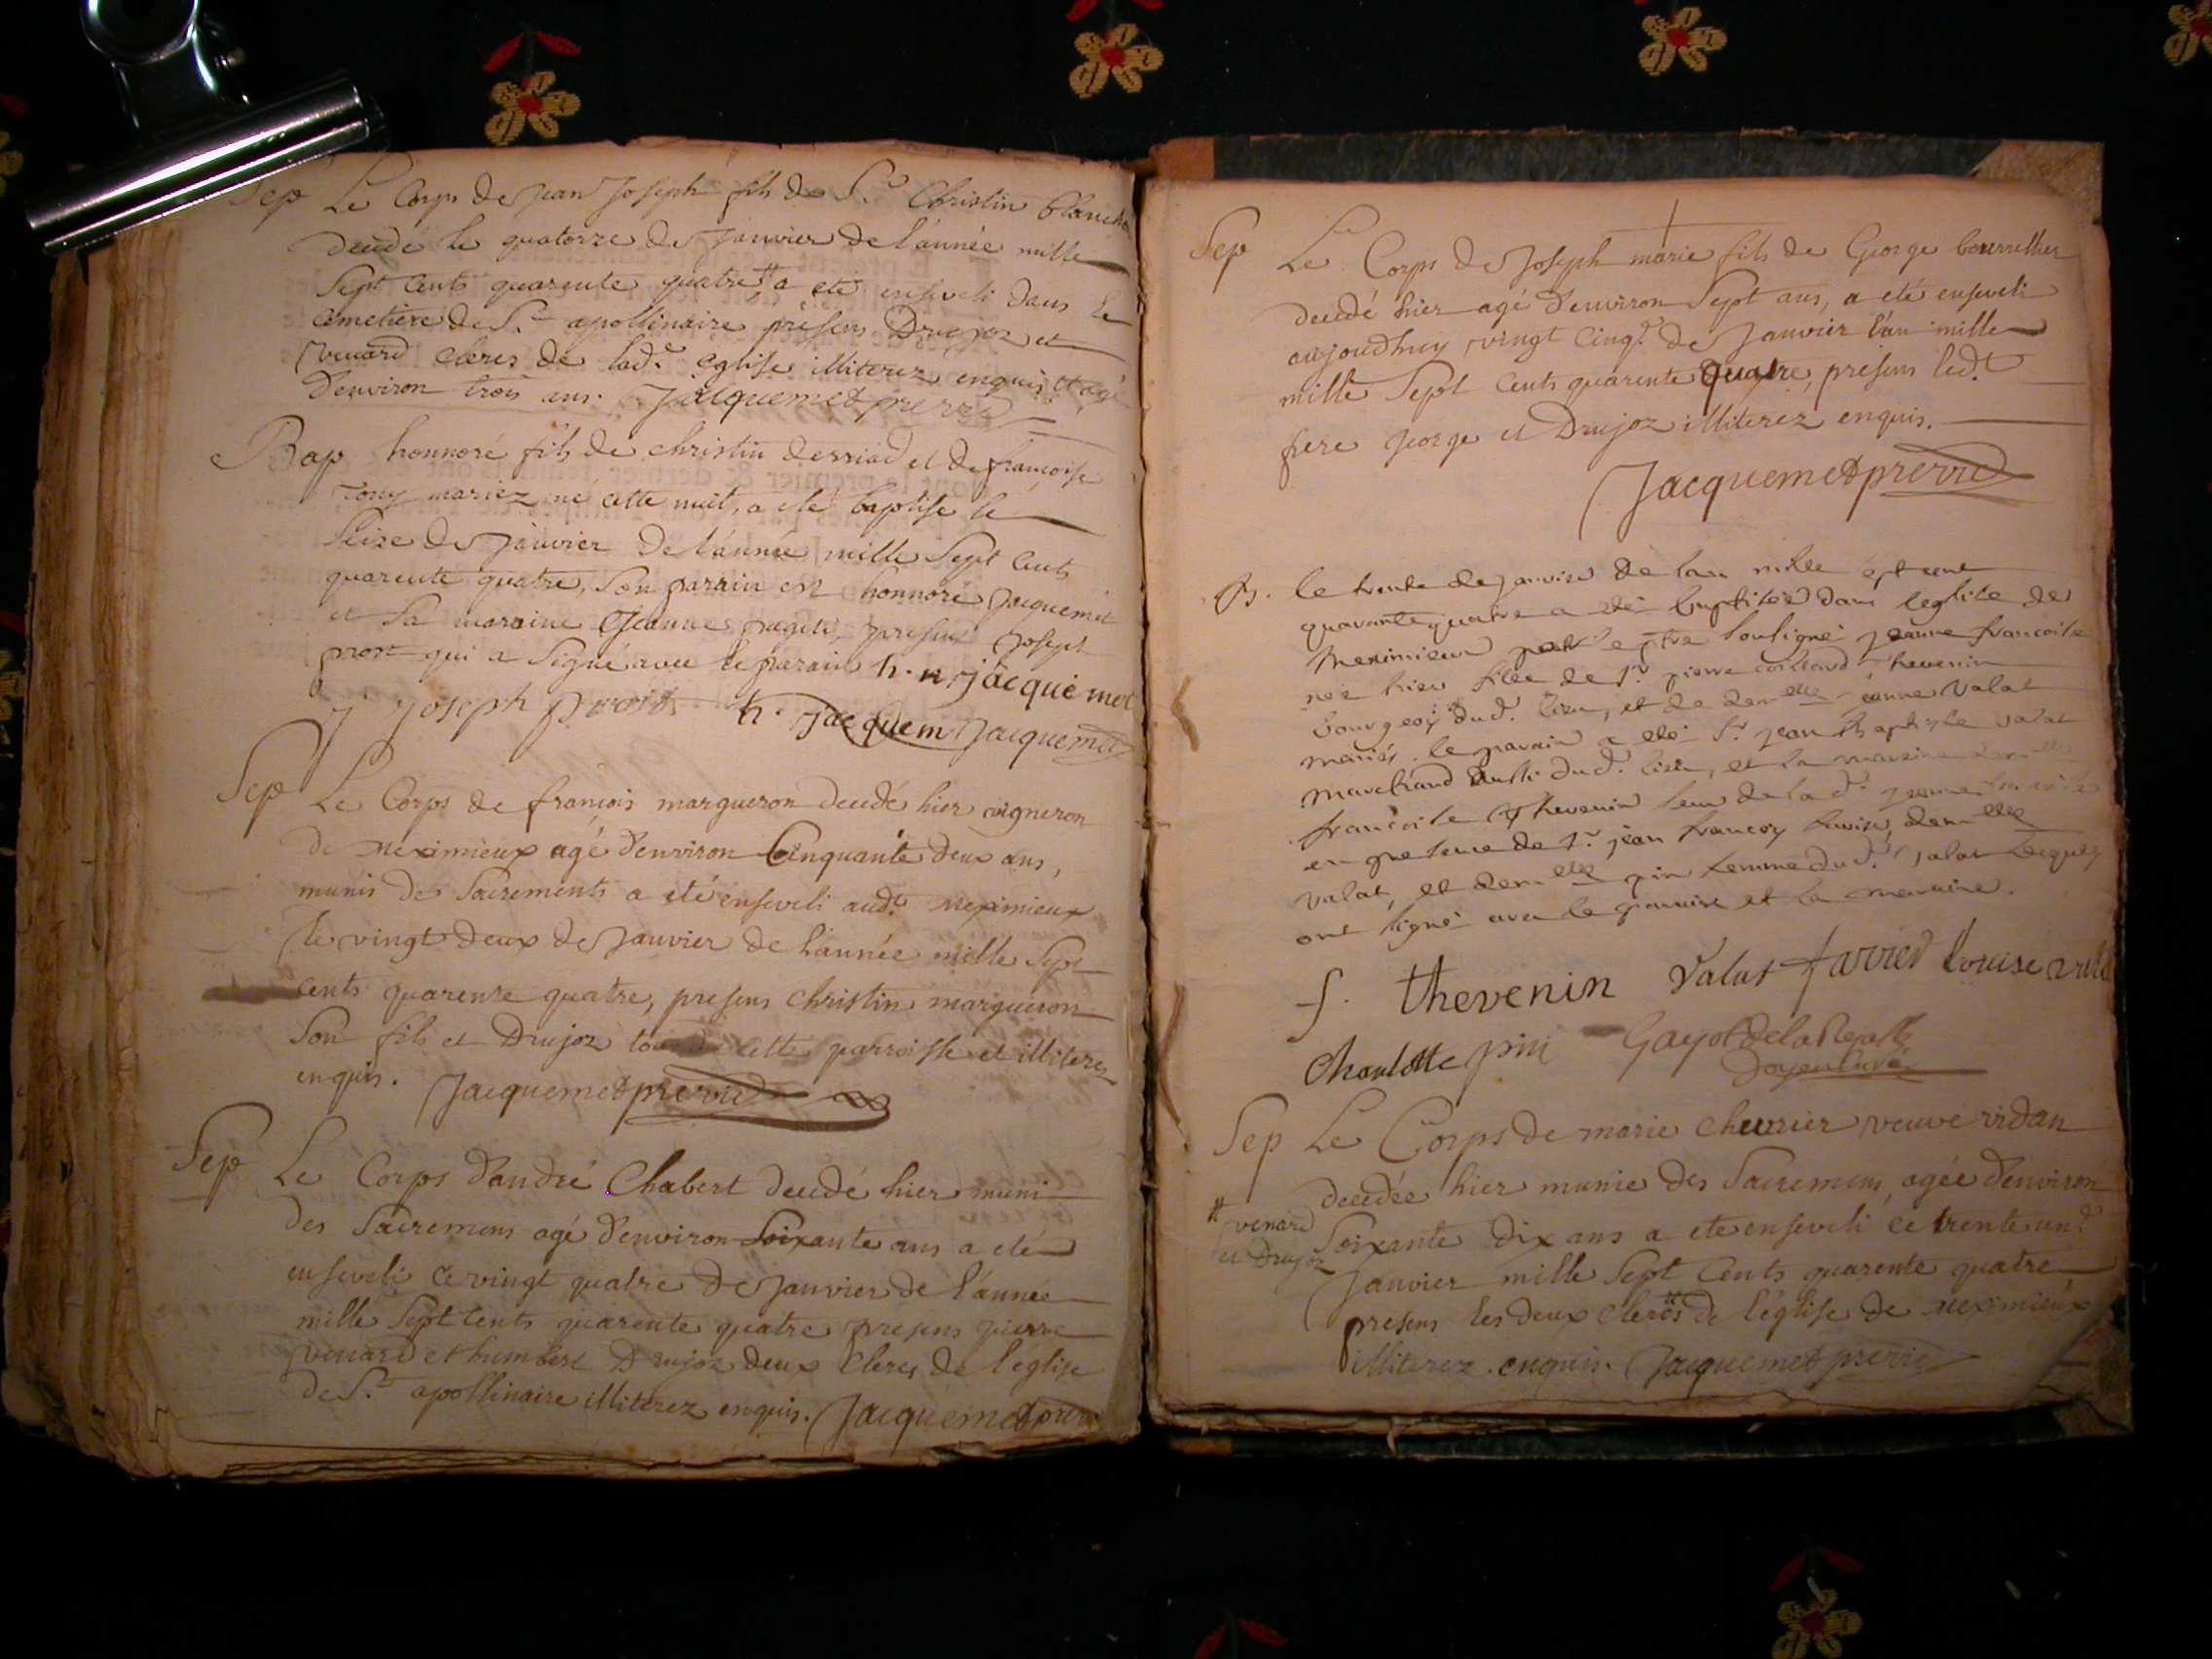 Sep Le Corps de Jean Joseph fils de Sr. Christin blanch
decedé le quatorze de Janvier de l'année mille
Sept Cents quarente quatre # a eté enseveli dans le
Cemetiere de St. apollinaire presens Drujoz et
venard clercs de lade. eglise illiterez enquis # agé
d'environ trois ans. Jacquemet prevre
Bap honnoré fils de christin derriad et de françoise
Tony mariez né cette nuit, a eté baptisé le
Seize de Janvier de l'année mille Sept Cents
quarente quatre, Son parrain est honnoré Jacquemet
et Sa maraine Jeanne presens Joseph
prost qui a Signé avec le parain h. n jacquemet
Joseph prost h. jacquem Jacquemet
Sep Le Corps de françois margueron decedé hier vigneron
de meximieux agé d'environ Cinquante deux ans,
munis des Sacrements a eté enseveli audt. meximieux
le vingt deux de Janvier de l'année mille Sept
Cents quarente quatre, presens christin margueron
Son fils et Drujoz cette parroisse et illiterez
enquis. Jacquemet prevre
Sep Le Corps d'andré Chabert decedé hier muni
des Sacremens agé d'environ Soixante ans a eté
enseveli ce vingt quatre de Janvier de l'année
mille Sept Cents quarente quatre presens pierre
venard et humbert Drujoz deux Clercs de l'église
de St. apollinaire illiterez enquis. Jacquemet prevr
Sep Le Corps de Joseph marie fils de George bourrellier
decedé hier agé d'environ Sept ans, a eté enseveli
aujoudhuy vingt Cinq. de Janvier l'an mille
mille Sept Cents quarente quatre, presens ledt.
pere george et Drujoz illiterez enquis.
Jacquemet prevre
B. le trente de janvier de lan mille sept cent
quarante quatre a eté baptisée dans leglise de
Meximieux par le ptre soussigné jeanne francoise
née hier fille de Sr. pierre thevenin
bourgeois dud. lieu, et de demelle jeanne valat
mariés. le parain a eté Sr. jean Baptiste valat
marchand aussi dud. lieu, et la maraine demelle
francoise thevenin de lad. jeanne francoise
en presence de Sr. jean francoy, demelle
valat, et demelle pin femme dud. Sr valat lesquels
ont signé avec le parain et la maraine.
f. thevenin Valat farrier louise
Charlotte pin Gayot de la
Doyen Curé
Sep Le Corps de marie cheurier veuve vidan
decedée hier munie des Sacremens, agée d'environ
# venard
et Drujoz
Soixante dix ans a eté enseveli ce trente un d
Janvier mille Sept Cents quarente quatre
presens les deux clercs # de l'église de meximieux
illiterez enquis. Jacquemet prevre